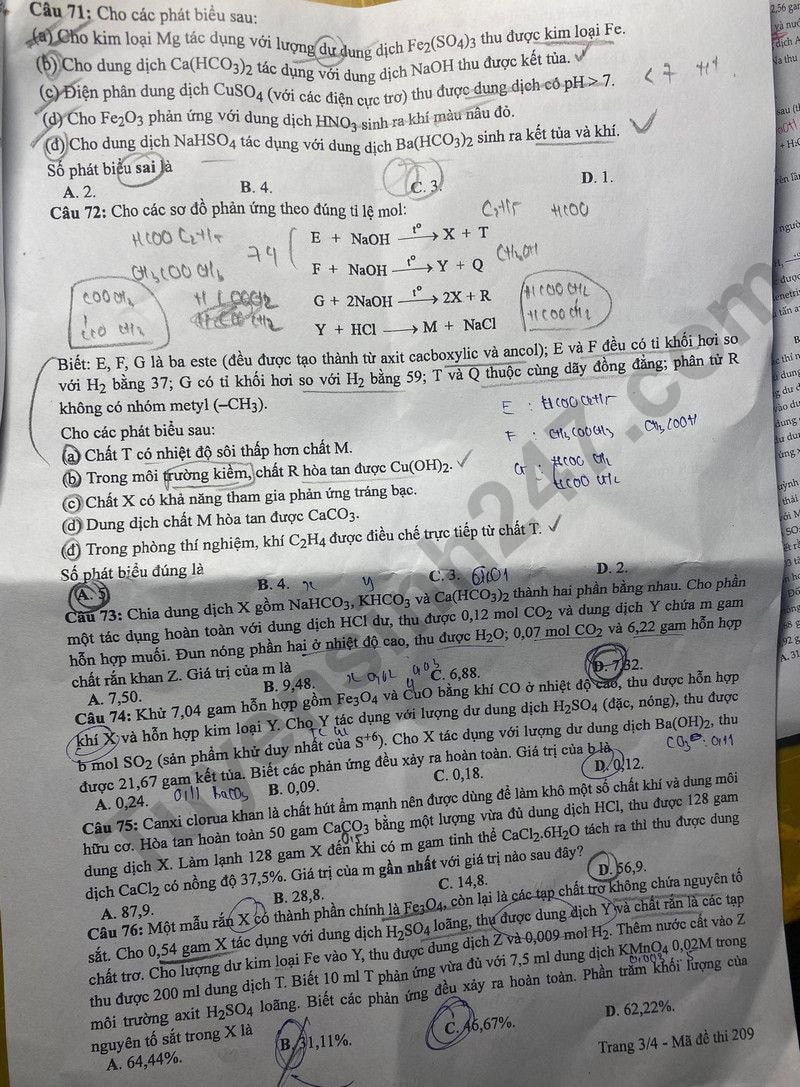 Câu 71: Cho các phát biểu sau:
(a) Cho kim loại Mg tác dụng với lượng dư dung dịch Fe2(SO4)3 thu được kim loại Fe.
(b) Cho dung dịch Ca(HCO3)2 tác dụng với dung dịch NaOH thu được kết tủa.
(c) Điện phân dung dịch CuSO4 (với các điện cực trơ) thu được dung dịch có pH > 7.
< 7
(d) Cho Fe2O3 phản ứng với dung dịch HNO3 sinh ra khí màu nâu đỏ.
(đ) Cho dung dịch NaHSO4 tác dụng với dung dịch Ba(HCO3)2 sinh ra kết tủa và khí.
Số phát biểu sai là
A. 2. B. 4. C. 3. D. 1.
Câu 72: Cho các sơ đồ phản ứng theo đúng tỉ lệ mol:
C2H5 HCOO
HCOO C2H5
74
E + NaOH t° X + T
CH3COO CH3
F + NaOH t° Y + Q
CH3OH
COO CH3
G + 2NaOH t° 2X + R
HCOO CH2
HCOO CH2
Y + HCl M + NaCl
Biết: E, F, G là ba este (đều được tạo thành từ axit cacboxylic và ancol); E và F đều có tỉ khối hơi so
với H2 bằng 37; G có tỉ khối hơi so với H2 bằng 59; T và Q thuộc cùng dãy đồng đẳng; phân tử R
không có nhóm metyl (–CH3).
E : HCOO C2H5
Cho các phát biểu sau:
F : CH3COOCH3 CH3COOH
(a) Chất T có nhiệt độ sôi thấp hơn chất M.
(b) Trong môi trường kiềm, chất R hòa tan được Cu(OH)2.
G : HCOO CH2
HCOO CH2
(c) Chất X có khả năng tham gia phản ứng tráng bạc.
(d) Dung dịch chất M hòa tan được CaCO3.
(đ) Trong phòng thí nghiệm, khí C2H4 được điều chế trực tiếp từ chất T.
Số phát biểu đúng là
A. 5 B. 4. C. 3. D. 2.
x y
Câu 73: Chia dung dịch X gồm NaHCO3, KHCO3 và Ca(HCO3)2 thành hai phần bằng nhau. Cho phần
một tác dụng hoàn toàn với dung dịch HCl dư, thu được 0,12 mol CO2 và dung dịch Y chứa m gam
hỗn hợp muối. Đun nóng phần hai ở nhiệt độ cao, thu được H2O; 0,07 mol CO2 và 6,22 gam hỗn hợp
chất rắn khan Z. Giá trị của m là
A. 7,50. B. 9,48. C. 6,88. D. 7,32.
Câu 74: Khử 7,04 gam hỗn hợp gồm Fe3O4 và CuO bằng khí CO ở nhiệt độ cao, thu được hỗn hợp
khí X và hỗn hợp kim loại Y. Cho Y tác dụng với lượng dư dung dịch H2SO4 (đặc, nóng), thu được
b mol SO2 (sản phẩm khử duy nhất của S+6). Cho X tác dụng với lượng dư dung dịch Ba(OH)2, thu
được 21,67 gam kết tủa. Biết các phản ứng đều xảy ra hoàn toàn. Giá trị của b là
A. 0,24. B. 0,09. C. 0,18. D. 0,12.
0,11 BaCO3
Câu 75: Canxi clorua khan là chất hút ẩm mạnh nên được dùng để làm khô một số chất khí và dung môi
hữu cơ. Hòa tan hoàn toàn 50 gam CaCO3 bằng một lượng vừa đủ dung dịch HCl, thu được 128 gam
dung dịch X. Làm lạnh 128 gam X đến khi có m gam tinh thể CaCl2.6H2O tách ra thì thu được dung
dịch CaCl2 có nồng độ 37,5%. Giá trị của m gần nhất với giá trị nào sau đây?
A. 87,9. B. 28,8. C. 14,8. D. 56,9.
Câu 76: Một mẫu rắn X có thành phần chính là Fe3O4, còn lại là các tạp chất trơ không chứa nguyên tố
sắt. Cho 0,54 gam X tác dụng với dung dịch H2SO4 loãng, thu được dung dịch Y và chất rắn là các tạp
chất trơ. Cho lượng dư kim loại Fe vào Y, thu được dung dịch Z và 0,009 mol H2. Thêm nước cất vào Z
thu được 200 ml dung dịch T. Biết 10 ml T phản ứng vừa đủ với 7,5 ml dung dịch KMnO4 0,02M trong
môi trường axit H2SO4 loãng. Biết các phản ứng đều xảy ra hoàn toàn. Phần trăm khối lượng của
nguyên tố sắt trong X là
A. 64,44%. B. 31,11%. C. 46,67%. D. 62,22%.
Trang 3/4 - Mã đề thi 209